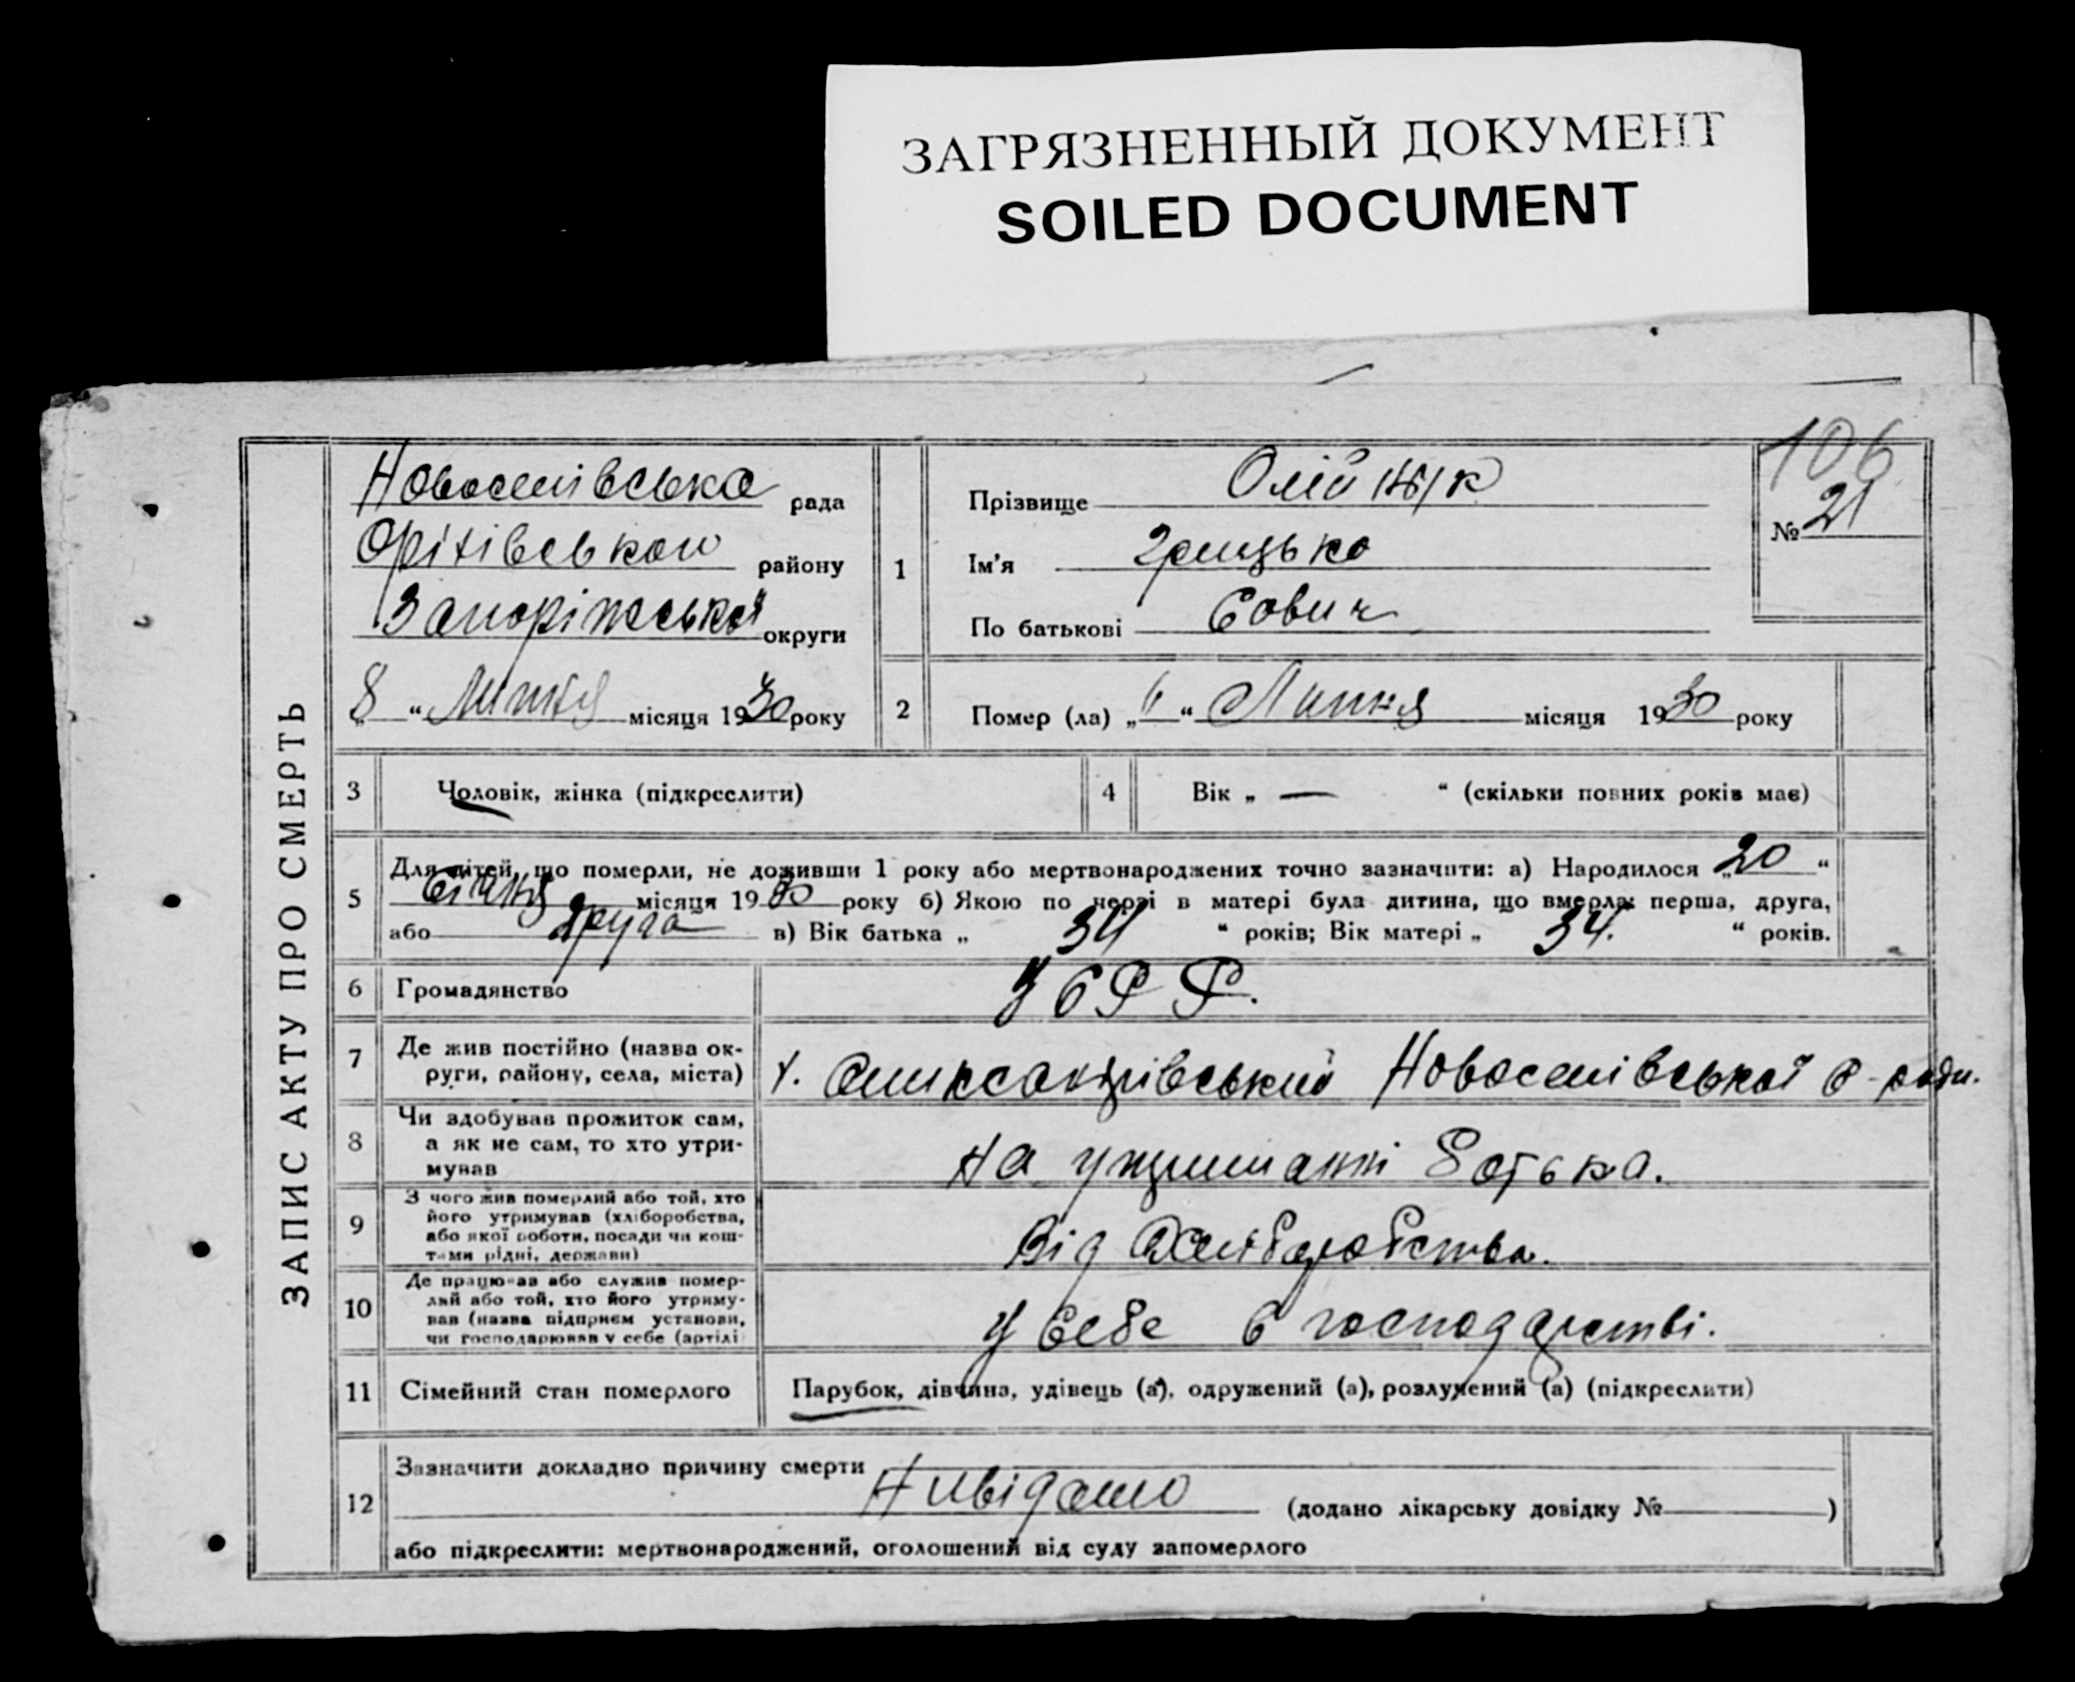 ЗАГРЯЗНЕННЫЙ ДОКУМЕНТ
SOILED DOCUMENT
ЗАПИС АКТУ ПРО СМЕРТЬ
106
№ 21
Новоселівська рада
Оріхівської району
Запоріжської округи
„8“ Липня місяця 1930 року
1
Прізвище Олійник
Ім'я Грицько
По батькові
2
Помер (ла) „6“ Липня місяця 1930 року
3 Чоловік, жінка (підкреслити)
4 Вік „ — “ (скільки повних років має)
5 Для дітей, що померли, не доживши 1 року або мертвонароджених точно зазначити: а) Народилося „20“
Січня місяця 1930 року б) Якою по черзі в матері була дитина, що вмерла: перша, друга,
або друга в) Вік батька „ 34 “ років; Вік матері „ 34. “ років.
6 Громадянство УСРР.
7 Де жив постійно (назва ок-
руги, району, села, міста)
х. Олександрівський Новоселівської с-ради.
8 Чи здобував прожиток сам,
а як не сам, то хто утри-
мував
На утриманні батька.
9 З чого жив померлий або той, хто
його утримував (хліборобства,
або якої роботи, посади чи кош-
тами рідні, держави)
Від хліборобства.
10 Де працював або служив помер-
лий або той, хто його утриму-
вав (назва підприєм установи,
чи господарював у себе (артілі)
У себе в господарстві.
11 Сімейний стан померлого
Парубок, дівчина, удівець (а), одружений (а), розлучений (а) (підкреслити)
12 Зазначити докладно причину смерти
Нивідомо (додано лікарську довідку № )
або підкреслити: мертвонароджений, оголошений від суду запомерлого